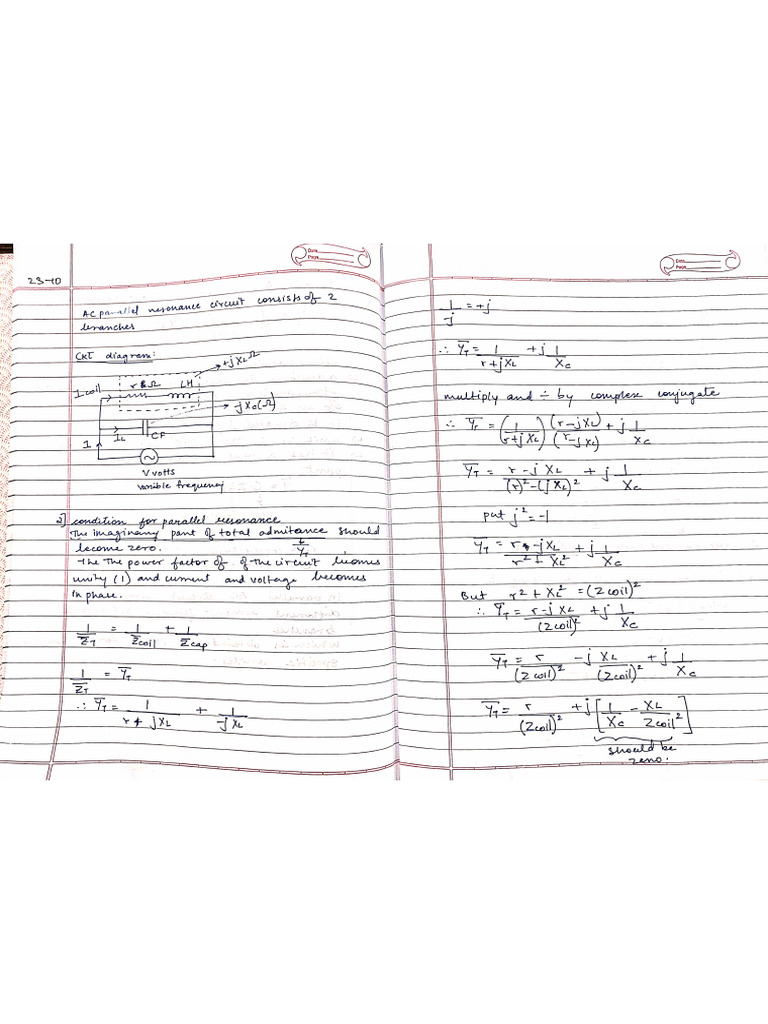 Date
Page
23-10
AC parallel resonance circuit consists of 2
branches
CKT diagram:
+jXLΩ
I coil
r Ω
LH
-jXc(-Ω)
IL
CF
I
V volts
varible frequency
2] condition for parallel resonance
The imaginary part of total admitance should
become zero.
YT
the The power factor of of the circuit becomes
unity (1) and current and voltage becomes
in phase.
1/Z̅T = 1/Z̅coil + 1/Z̅cap
1/Z̅T = Y̅T
∴ Y̅T = 1/(r + jXL) + 1/(-jXL)
Date
Page
1/-j = +j
∴ Y̅T = 1/(r+jXL) + j 1/Xc
multiply and ÷ by complex conjugate
∴ Y̅T = (1/(r+jXL)) (r-jXL)/(r-jXL) + j 1/Xc
Y̅T = (r-jXL)/((r)²-(jXL)²) + j 1/Xc
put j² = -1
Y̅T = (r-jXL)/(r²+XL²) + j 1/Xc
But r² + XL² = (Zcoil)²
∴ Y̅T = (r-jXL)/(Zcoil)² + j 1/Xc
Y̅T = r/(Zcoil)² - j XL/(Zcoil)² + j 1/Xc
Y̅T = r/(Zcoil)² + j [1/Xc - XL/Zcoil²]
should be
zero.